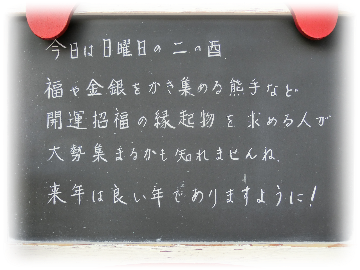 今日は日曜日の二の酉.
福や金銀をかき集める熊手など
開運招福の縁起物を求める人が
大勢集まるかも知れませんね.
来年は良い年でありますように!